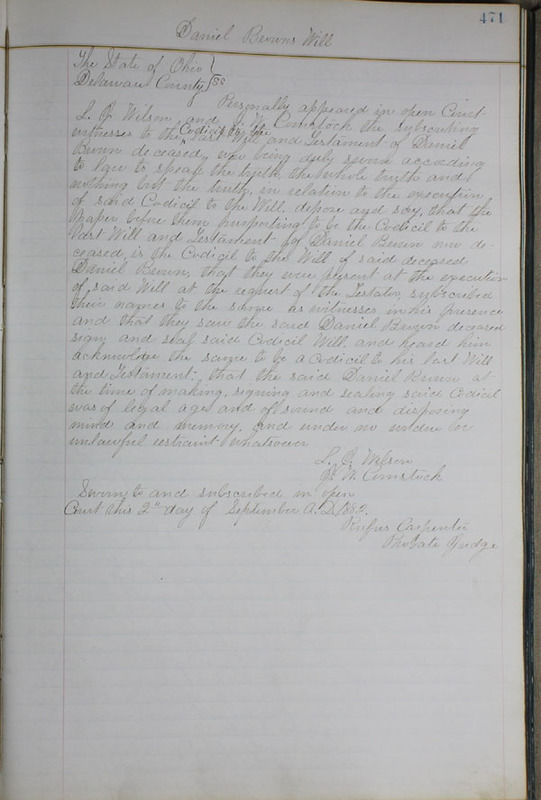 471
Daniel Beruns Will
The State of Ohio }
Delaware County } SS
Personally appeared in open Court
L. J. Wilson and J. W. Comstock the subscribing
witnesses to the Codicil to the last Will and Testament of Daniel
Berun deceased, who being duly sworn according
to law to speak the truth the whole truth and
nothing but the truth, in relation to the execution
of said Codicil to the Will, depose and say, that the
Paper before them purporting to be the Codicil to the
last Will and Testament of Daniel Berun now de-
ceased, is the Codicil to the Will of said deceased
Daniel Berun, that they were present at the execution
of said Will at the request of the Testator, subscribed
their names to the same as witnesses in his presence
and that they saw the said Daniel Berun deceased
sign and seal said Codicil Will, and heard him
acknowledge the same to be a Codicil to his last Will
and Testament; that the said Daniel Berun at
the time of making, signing and sealing said Codicil
was of legal age and of sound and disposing
mind and memory, and under no undue or
unlawful restraint whatsoever
L. J. Wilson
J. W. Comstock
Sworn to and subscribed in open
Court this 2nd day of September A. D.
Rufus Carpenter
Probate Judge